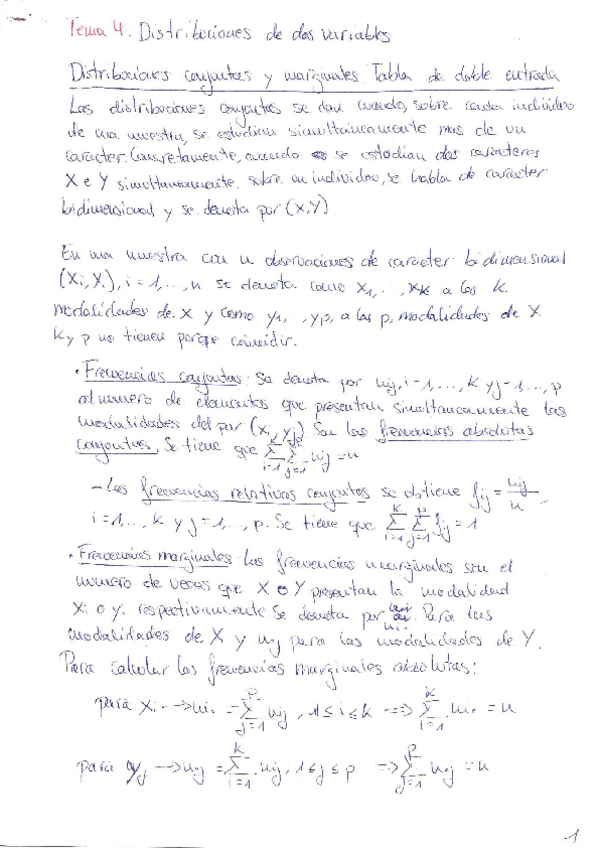 Tema 4. Distribuciones de dos variables
Distribuciones conjuntas y marginales. Tabla de doble entrada
Las distribuciones conjuntas se dan cuando, sobre cada individuo
de una muestra, se estudian simultáneamente mas de un
caracter. Concretamente, cuando se estudian dos caracteres
X e Y simultaneamente sobre un individuo, se habla de caracter
bidimensional y se denota por (X,Y)
En una muestra con n observaciones de caracter bidimensional
(Xi, Yi), i = 1, ..., n se denota como X1, ..., Xk a las k
modalidades de X y como y1, ..., yp, a las p, modalidades de X
K y p no tienen porque coincidir.
· Frecuencias conjuntas. Se denota por nij, i=1, ..., K y j=1, ..., p
al numero de elementos que presentan simultaneamente las
modalidades del par (xi, yj) Son las frecuencias absolutas
conjuntas. Se tiene que Σ_{i=1}^{k} Σ_{j=1}^{p} nij = n
- Las frecuencias relativas conjuntas se obtiene fij = nij/n
i=1, ..., K y j=1, ..., p. Se tiene que Σ_{i=1}^{K} Σ_{j=1}^{p} fij = 1
· Frecuencias marginales Las frecuencias marginales son el
numero de veces que X o Y presentan la modalidad
Xi o yj respectivamente. Se denota por ni. Para las
modalidades de X y n.j para las modalidades de Y.
Para calcular las frecuencias marginales absolutas:
para Xi → ni. = Σ_{j=1}^{p} nij, 1 ≤ i ≤ k ⇒ Σ_{i=1}^{k} ni. = n
para Yj → n.j = Σ_{i=1}^{k} nij, 1 ≤ j ≤ p ⇒ Σ_{j=1}^{p} n.j = n
1